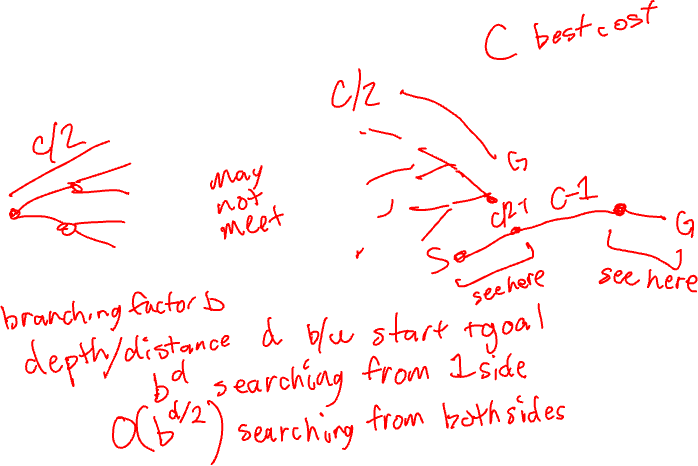 C best cost
C/2
C/2
G
may
not
meet
C/2-1
C-1
S
G
see here
see here
branching factor b
depth/distance d b/w start + goal
b^d searching from 1 side
O(b^d/2) searching from both sides